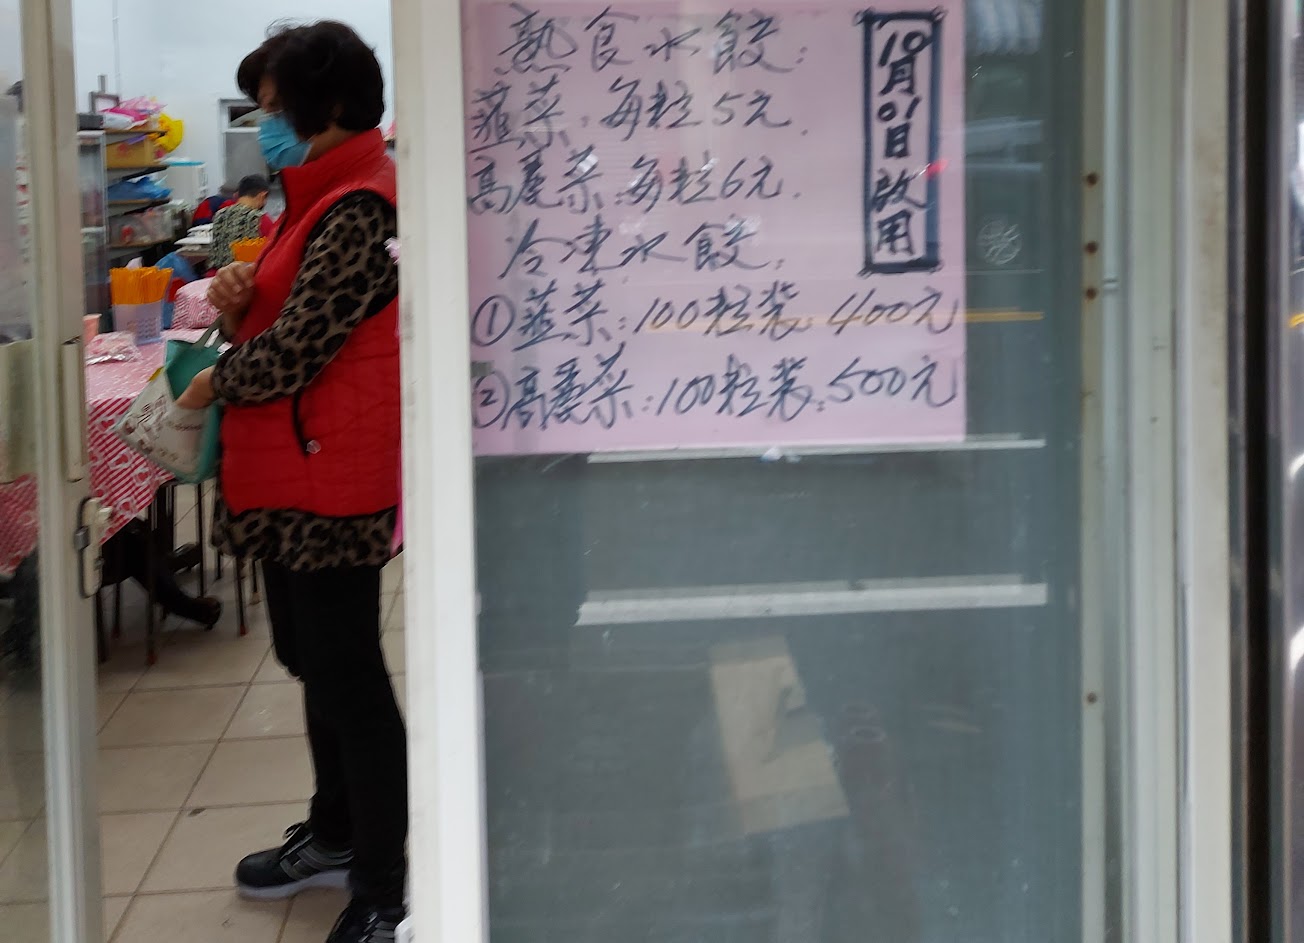 熟食水餃：
韮菜：每粒5元.
高麗菜：每粒6元.
冷凍水餃.
①韮菜：100粒裝.400元
②高麗菜：100粒裝：500元
10月01日啟用